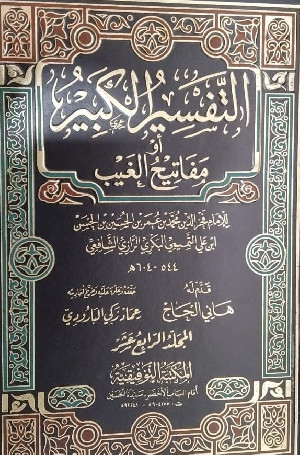 التفسير الكبير
أو
مفاتيح الغيب
للإمام فخر الدين محمد بن عمر بن الحسين بن الحسن
ابن علي التميمي البكري الرازي الشافعي
٥٤٤ - ٦٠٤ هـ
قدم له
هاني الحاج
حققه وعلق عليه وخرج أحاديثه
عماد زكي البارودي
المجلد الرابع عشر
المكتبة التوفيقية
أمام الباب الأخضر سيدنا الحسين